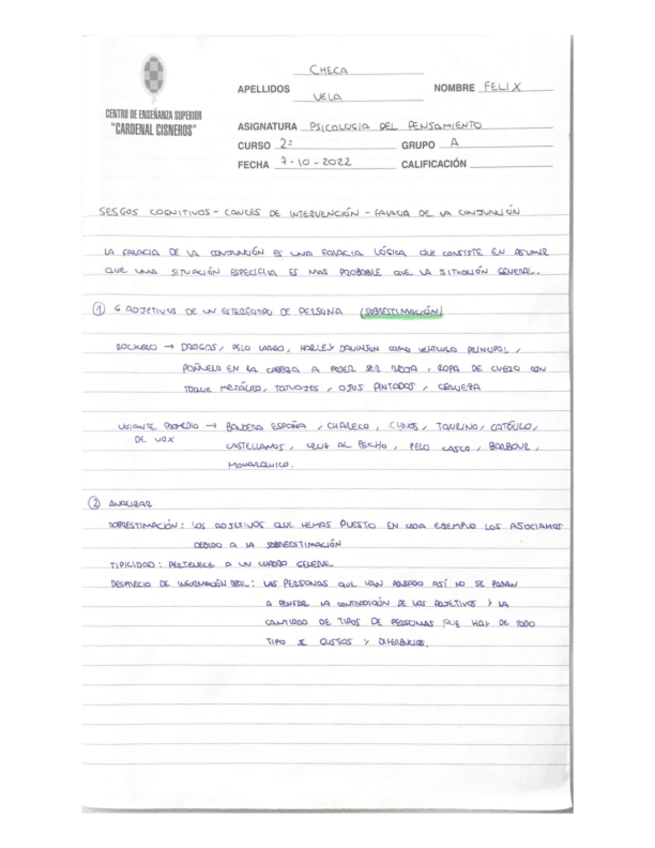 CHECA
APELLIDOS NOMBRE FELIX
VELA
CENTRO DE ENSEÑANZA SUPERIOR
"CARDENAL CISNEROS"
ASIGNATURA PSICOLOGIA DEL PENSAMIENTO
CURSO 2º GRUPO A
FECHA 7-10-2022 CALIFICACIÓN
SESGOS COGNITIVOS - CAUCES DE INTERVENCIÓN - FALACIA DE LA CONJUNCIÓN
LA FALACIA DE LA CONJUNCIÓN ES UNA FALACIA LÓGICA QUE CONSISTE EN ASUMIR
QUE UNA SITUACIÓN ESPECÍFICA ES MAS PROBABLE QUE LA SITUACIÓN GENERAL.
① 6 ADJETIVOS DE UN ESTEREOTIPO DE PERSONA (SOBRESTIMACIÓN)
ROCKERO → DROGAS, PELO LARGO, HARLEY DAVINSON COMO VEHICULO PRINCIPAL,
PAÑUELO EN LA CABEZA A PODER SER ROJA, ROPA DE CUERO CON
TOQUE METÁLICO, TATUAJES, OJOS PINTADOS, CERVEZA
VOTANTE PROMEDIO → BANDERA ESPAÑA, CHALECO, CHINOS, TAURINO, CATÓLICO,
DE VOX
CASTELLANOS, CRUZ AL PECHO, PELO CASCO, BARBOUR,
MONÁRQUICO.
② ANALIZAR
SOBRESTIMACIÓN: LOS ADJETIVOS QUE HEMOS PUESTO EN CADA EJEMPLO LOS ASOCIAMOS
DEBIDO A LA SOBREESTIMACIÓN
TIPICIDAD: PERTENECE A UN CUADRO GENERAL.
DESPRECIO DE INFORMACIÓN REAL: LAS PERSONAS QUE HAN PENSADO ASÍ NO SE PARAN
A PENSAR LA CONTRADICIÓN DE LOS ADJETIVOS Y LA
CANTIDAD DE TIPOS DE PERSONAS QUE HAY DE TODO
TIPO DE GUSTOS Y DIFERENCIAS.